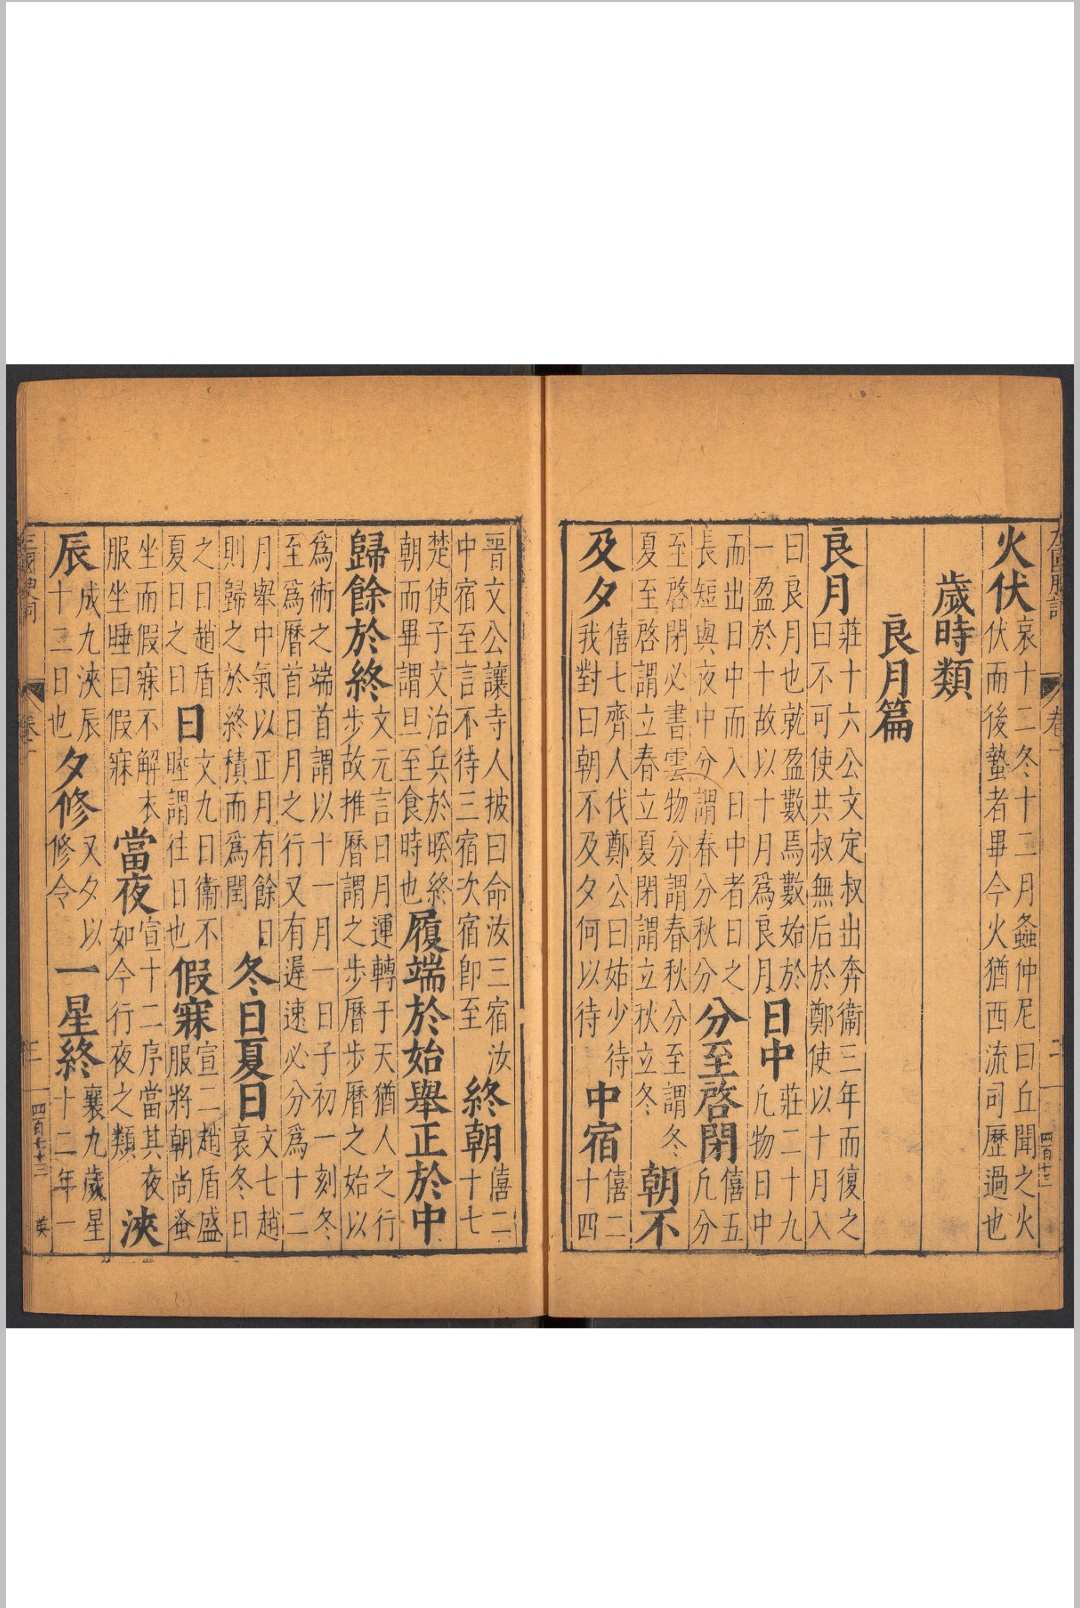 火伏哀十二冬十二月螽仲尼曰丘聞之火
伏而後蟄者畢今火猶西流司歷過也
歲時類
良月篇
良月莊十六公文定叔出奔衛三年而復之
曰不可使共叔無后於鄭使以十月入
曰良月也就盈數焉數始於日中莊二十九
一盈於十故以十月為良月凢物日中
而出日中而入日中者日之分至啓閉僖五
長短與夜中分謂春分秋分凢分
至啓閉必書雲物分謂春秋分至謂冬朝不
夏至啓謂立春立夏閉謂立秋立冬
及夕僖七齊人伐鄭公曰姑少待中宿僖二
我對曰朝不及夕何以待十四
晉文公讓寺人披曰命汝三宿汝終朝僖二
中宿至言不待三宿次宿卽至十七
楚使子文治兵於睽終履端於始舉正於中
朝而畢謂旦至食時也
歸餘於終文元言日月運轉于天猶人之行
步故推曆謂之步曆步曆之始以
爲術之端首謂以十一月一日子初一刻冬
至爲曆首日月之行又有遲速必分爲十二
月舉中氣以正月有餘日冬日夏日文七趙
則歸之於終積而爲閏哀冬日
之日趙盾日文九日衞不假寐宣二趙盾盛
夏日之日睦謂往日也服將朝尚蚤
坐而假寐不解衣當夜宣十二序當其夜浹
服坐睡曰假寐如今行夜之類
辰成九浹辰夕修又夕以一星終襄九歲星
十二日也修令十二年一
卷十
四百七十三
英